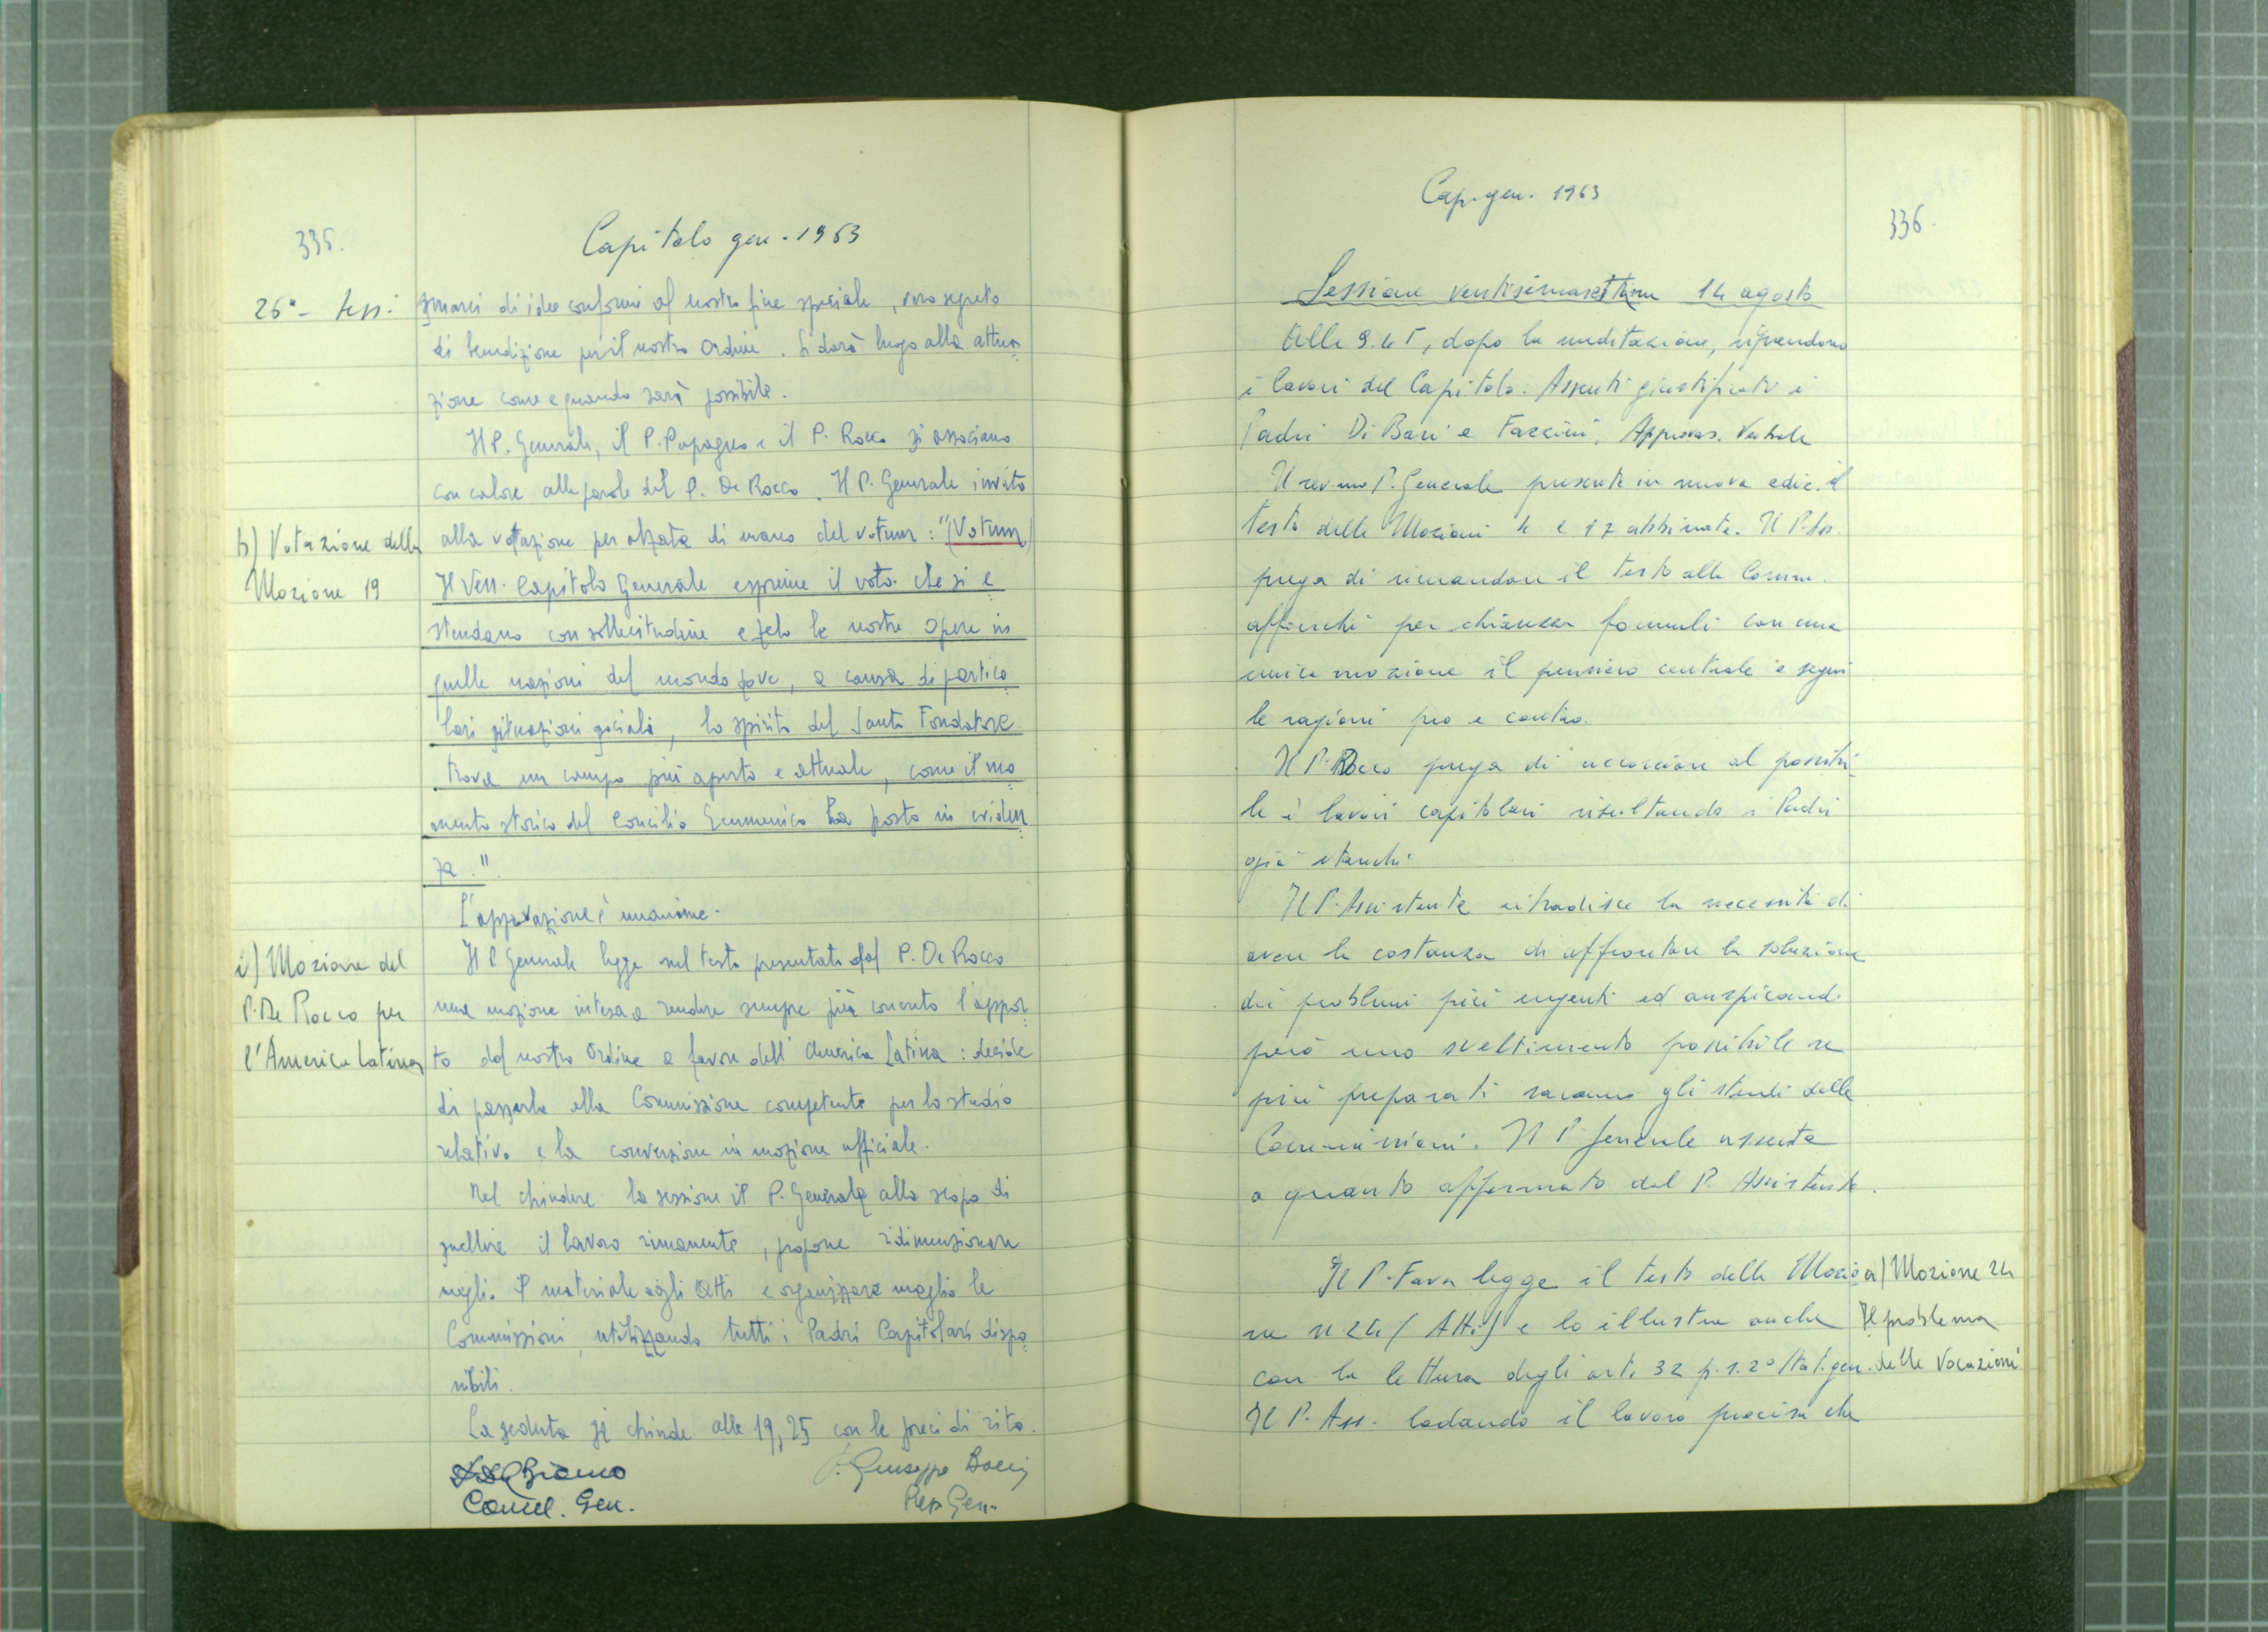 335.
Capitolo gen. 1963
26ª - sess.
di idee conformi al nostro fine speciale, vero segreto
di benedizione per il nostro Ordine. Si darà luogo alla attua
zione come e quando sarà possibile.
Il P. Generale, il P. Papagno e il P. Rocco si associano
con calore alle parole del P. De Rocco. Il P. Generale invita
h) Votazione della
Mozione 19
alla votazione per alzata di mano del votum: "(Votum)
Il Ven. Capitolo Generale esprime il voto che si e
stendano con sollecitudine e zelo le nostre Opere in
quelle nazioni del mondo dove, a causa di partico
lari situazioni sociali, lo spirito del Santo Fondatore
trova un campo più aperto e attuale, come il mo
mento storico del Concilio Ecumenico ha posto in eviden
za."
L'approvazione è unanime.
i) Mozione del
P. De Rocco per
l'America Latina
Il P. Generale legge nel testo presentato dal P. De Rocco
una mozione intesa a rendere sempre più concreto l'appor
to del nostro Ordine a favore dell'America Latina: decide
di passarla alla Commissione competente per lo studio
relativo e la conversione in mozione ufficiale.
Nel chiudere la sessione il P. Generale allo scopo di
snellire il lavoro rimanente, propone ridimensionare
meglio il materiale agli Atti e organizzare meglio le
Commissioni, utilizzando tutti i Padri Capitolari dispo
nibili.
La seduta si chiude alle 19,25 con le preci di rito.
Cancel. Gen.
P. Giuseppe
Gen.
Cap. gen. 1963
336.
Sessione ventisimasettima 14 agosto
Alle 9.45, dopo la meditazione, riprendono
i lavori del Capitolo. Assenti giustificati i
Padri Di Bari e Fazzini. Approvaz. Verbale
Il rev.mo P. Generale presenta in nuova ediz. il
testo delle Mozioni 4 e 17 abbinate. Il P. Ass.
prega di rimandare il testo alla Comm.
affinché per chiarezza formuli con una
unica mozione il pensiero centrale e segui
le ragioni pro e contro.
Il P. Rocco prega di accorciare al possibi
le i lavori capitolari risultando i Padri
già stanchi.
Il P. Assistente ribadisce la necessità di
avere la costanza di affrontare la soluzione
dei problemi più urgenti ed auspicando
però uno sveltimento possibile se
più preparati saranno gli studi delle
Commissioni. Il P. Generale assente
a quanto affermato dal P. Assistente.
Il P. Fava legge il testo della Mozio
ne n 24 (Att.) e lo illustra anche
con la lettura degli art. 32 p. 1. 2º Stat. gen.
Il P. Ass. lodando il lavoro precisa che
a) Mozione 24
Il problema
delle Vocazioni